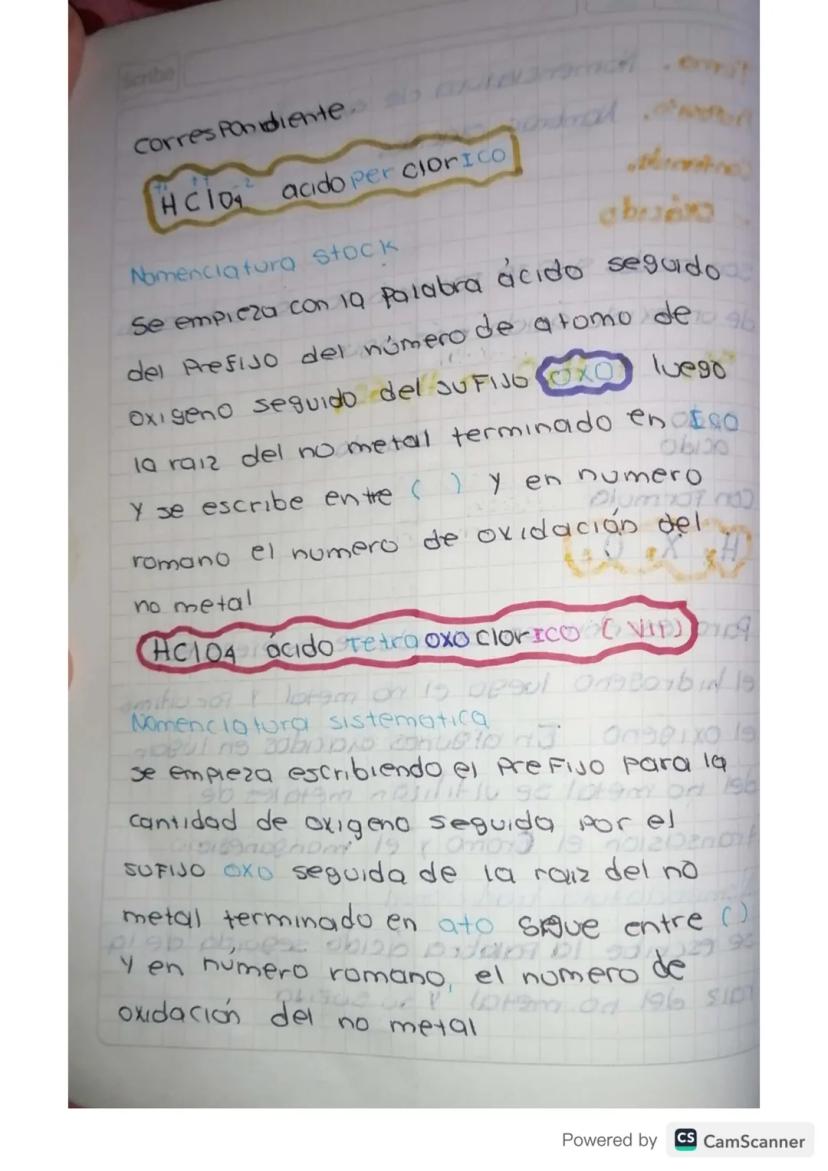 Scribe
correspondiente.
+1 +7 -2
HClO4 acido per clorICO
Nomenclatura stock
se empieza con la palabra ácido seguido
del prefijo del número de atomo de
oxigeno seguido del sufijo oxo luego
la raiz del no metal terminado en
y se escribe entre ( ) y en numero
romano el numero de oxidación del
no metal
HClO4 ácido tetraoxoclorICO (VII)
Nomenclatura sistematica
se empieza escribiendo el prefijo para la
cantidad de oxigeno seguida por el
sufijo oxo seguida de la raiz del no
metal terminado en ato sigue entre ()
y en número romano, el numero de
oxidación del no metal
Powered by CS CamScanner